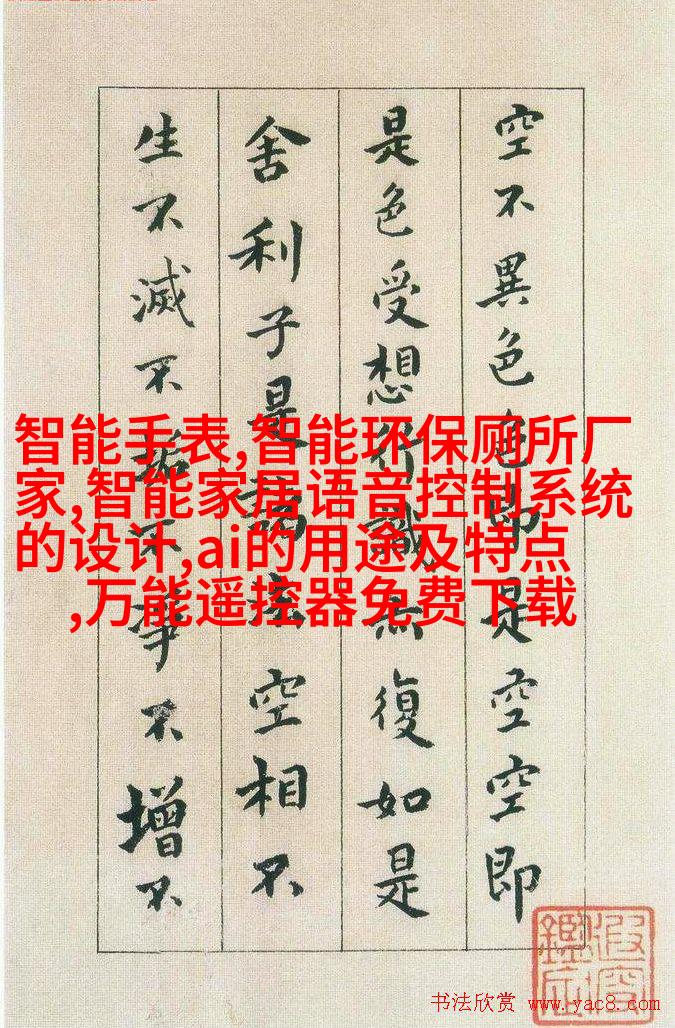 空不異色色即是空空即
是色受想行識亦復如是
舍利子是諸法空相不
生不滅不垢不淨不增不
智能手表,智能环保厕所厂
家,智能家居语音控制系统
的设计,ai的用途及特点
,万能遥控器免费下载
书法欣赏 www.yac8.com